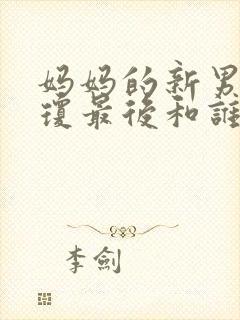 妈妈的新男
琼最后和誰
李劍